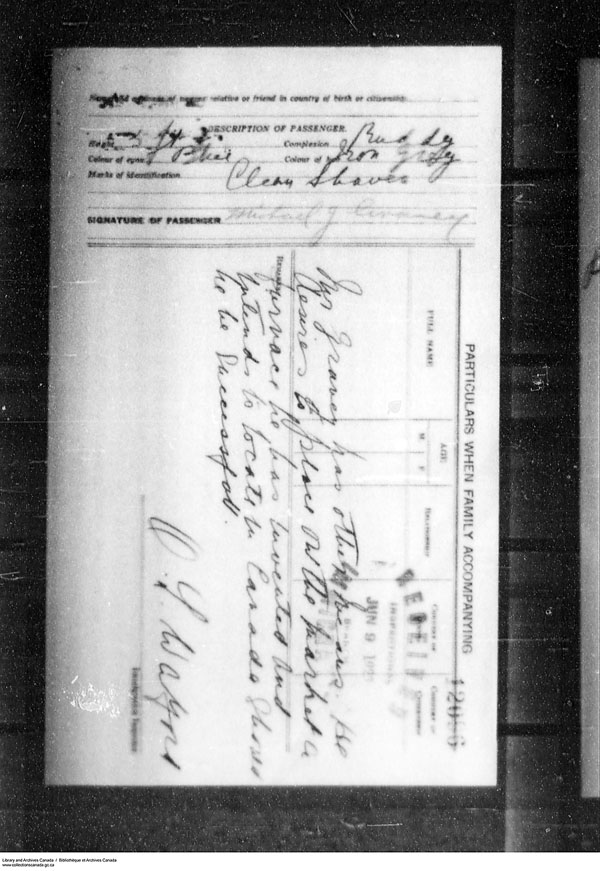 Name and address of nearest relative or friend in country of birth or citizenship
DESCRIPTION OF PASSENGER.
Height ft Complexion Ruddy
Colour of eyes Blue Colour of hair Iron Grey
Marks of identification Clean Shaven
SIGNATURE OF PASSENGER Michael J.
PARTICULARS WHEN FAMILY ACCOMPANYING
12086
FULL NAME
AGE
M F
RELATIONSHIP
COUNTRY OF
COUNTRY OF
JUN 9
Remarks
has other means. He
desires to place on the market a
furnace he has invented and
intends to locate in Canada Should
he be Successful.
Immigration Inspector
Library and Archives Canada / Bibliothèque et Archives Canada
www.collectionscanada.gc.ca